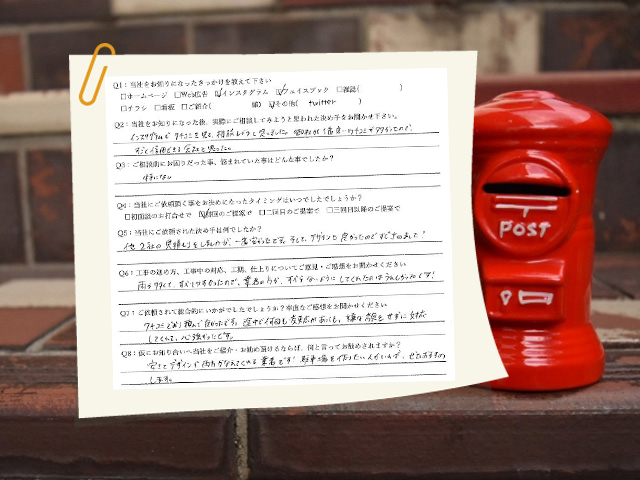 Q1：当社をお知りになったきっかけを教えて下さい
□ホームページ □Web広告 ☑インスタグラム ☑フェイスブック □雑誌( )
□チラシ □看板 □ご紹介( 様) ☑その他( twitter )
Q2：当社をお知りになった後、実際にご相談してみようと思われた決め手をお聞かせ下さい。
インスタグラムで クチコミを見て、相談しようと思いました。他社より1番良いクチコミがあったので、
すごく信用できる会社と思った。
Q3：ご相談前にお困りだった事、悩まれていた事はどんな事でしたか？
特になし
Q4：当社にご依頼頂く事をお決めになったタイミングはいつでしたでしょうか？
□初回面のお打合せで ☑初回のご提案で □二回目のご提案で □三回目以降のご提案で
Q5：当社に依頼された決め手は何でしたか？
他 2社の見積もりをしましたが、一番安かったです。そして、デザインも良かったのですぐ決めました！
Q6：工事の進め方、工事中の対応、工期、仕上りについてご意見・ご感想をお聞かせください
雨が多くて、すべりやすかったので、業者の方が、すべらないようにしてくれたのはうれしかったです！
Q7：ご依頼されて総合的にいかがでしたでしょうか？率直なご感想をお聞かせください
クチコミ通り頼んで良かったです。途中で何回も変更があっても、嫌な顔もせずに対応
してくれて、心強かったです。
Q8：仮にお知り合いへ当社をご紹介・お勧め頂けるならば、何と言ってお勧めされますか？
安くてデザインや両方かなえてくれる業者です！駐車場を作りたい人がいれば、ぜひおすすめ
します。
POST